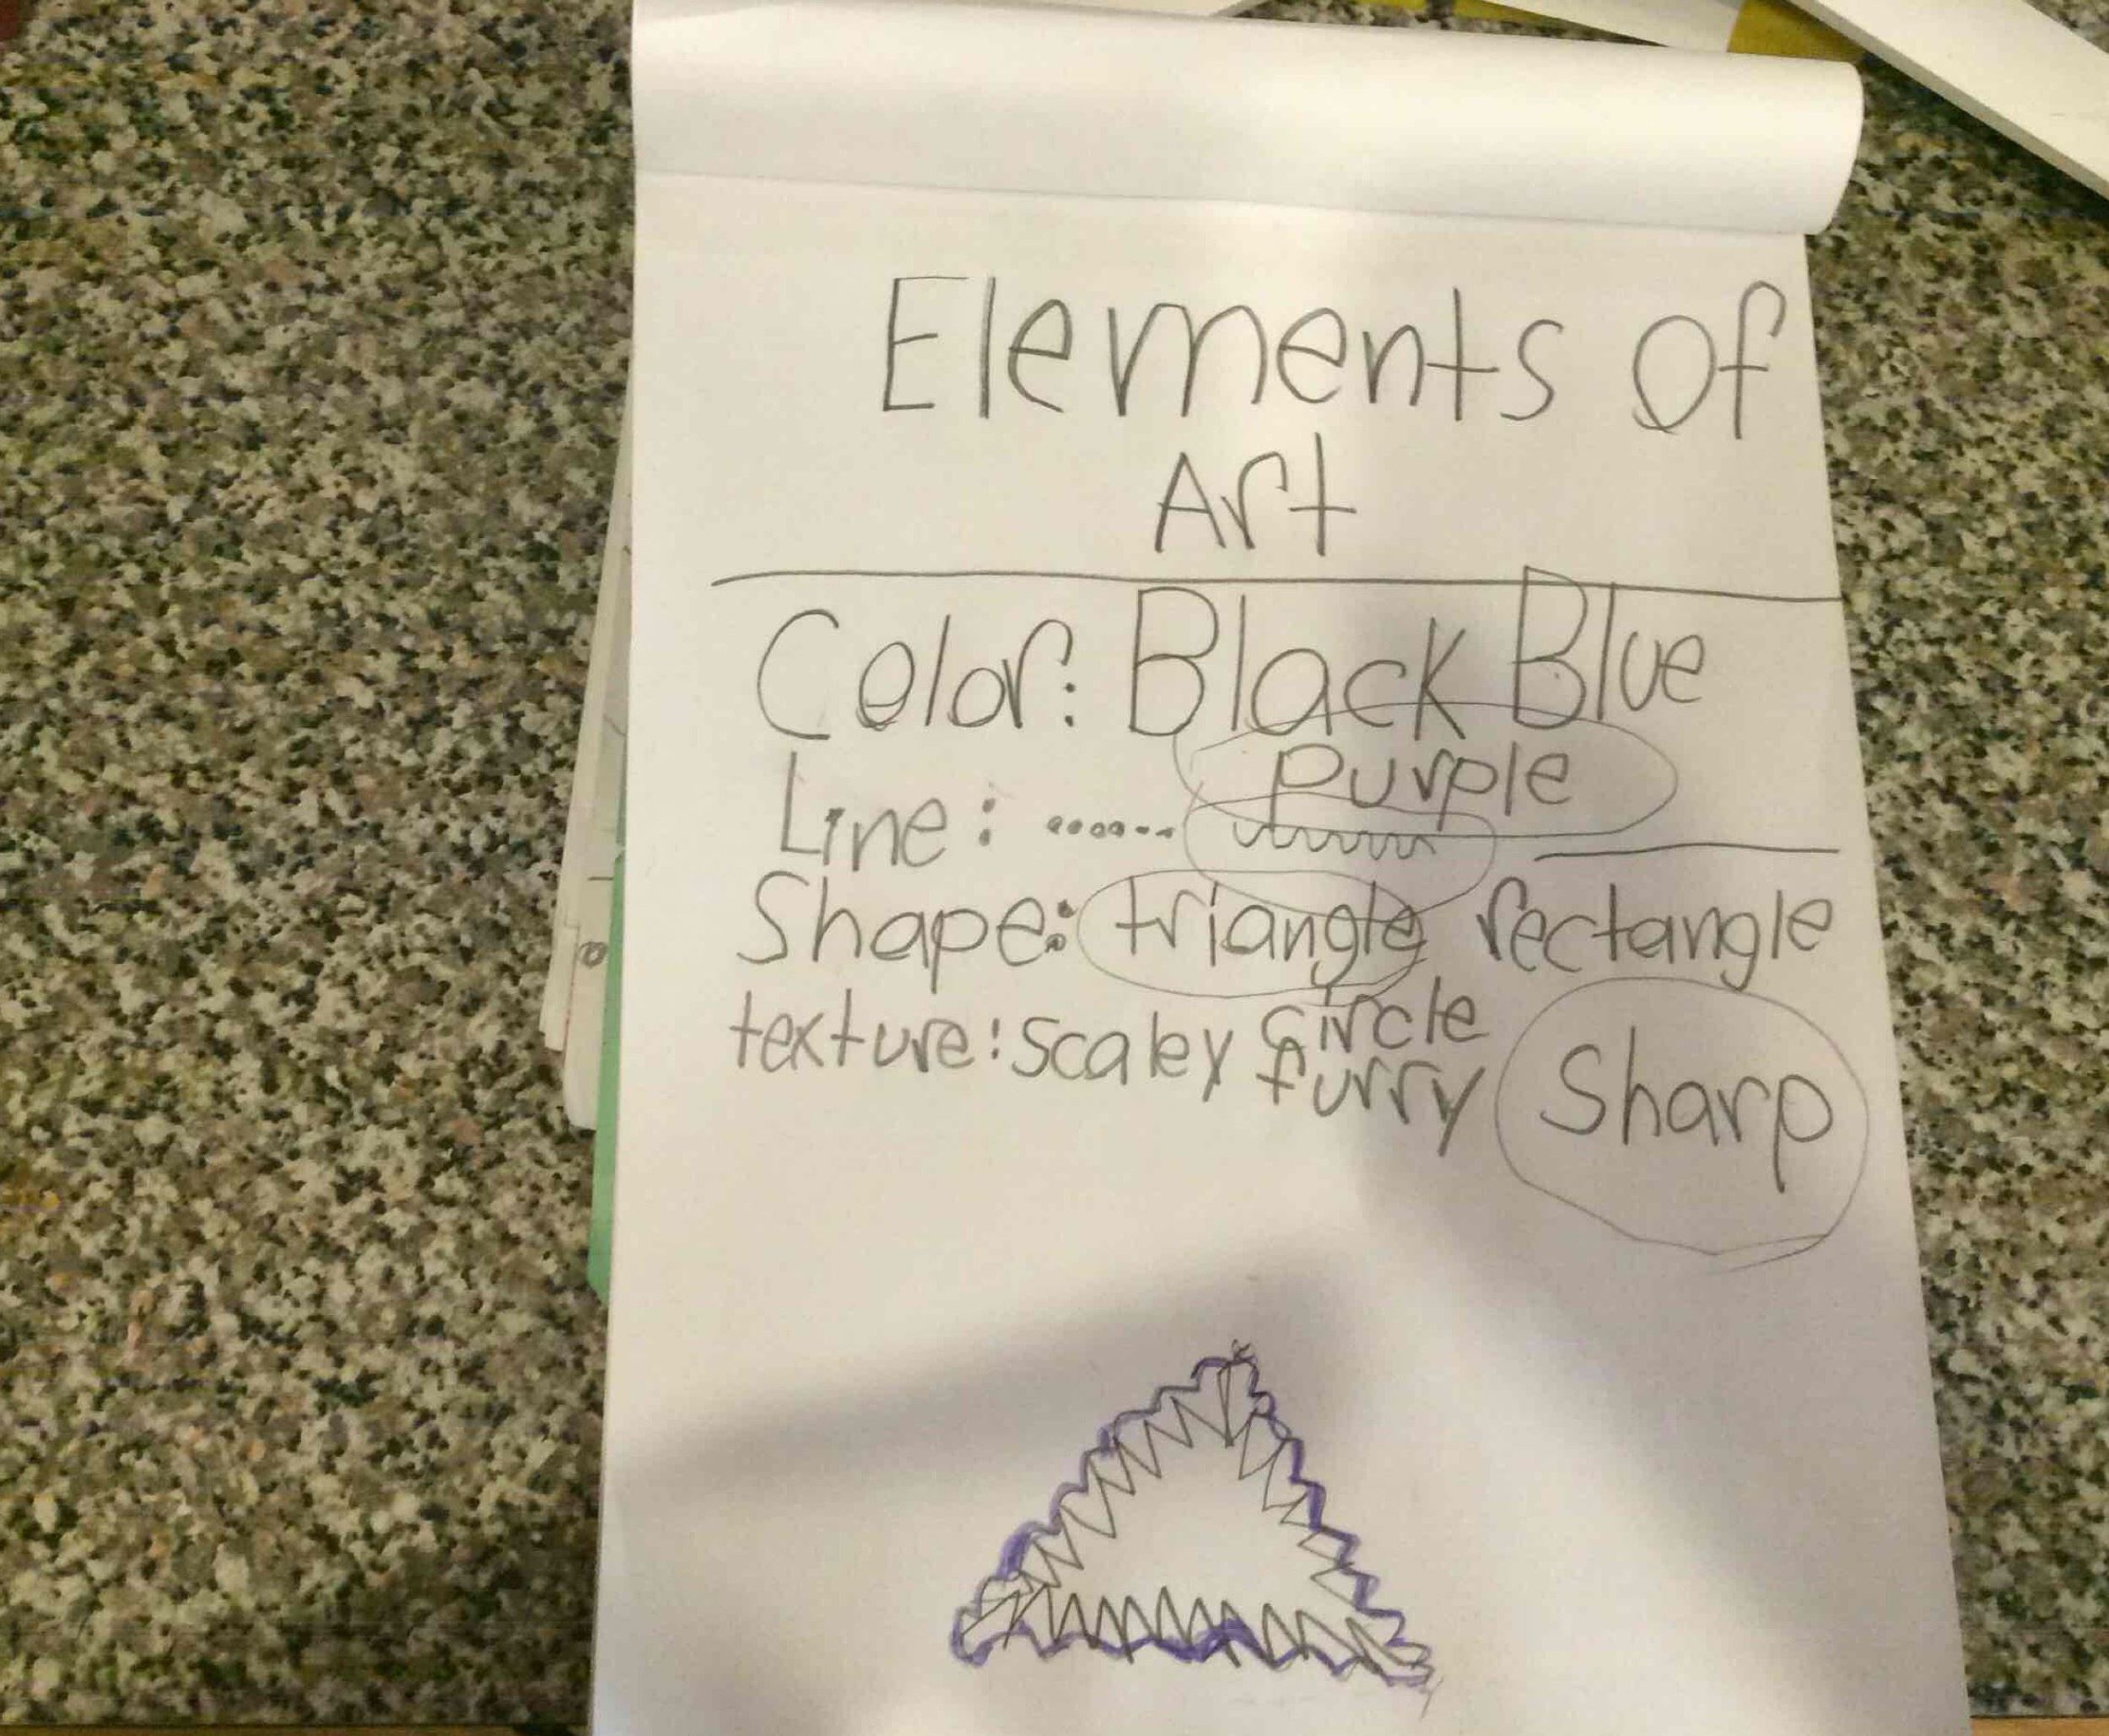 Elements of
Art
Color: Black Blue
purple
Line:
Shape: triangle rectangle
circle
texture: scaley furry Sharp